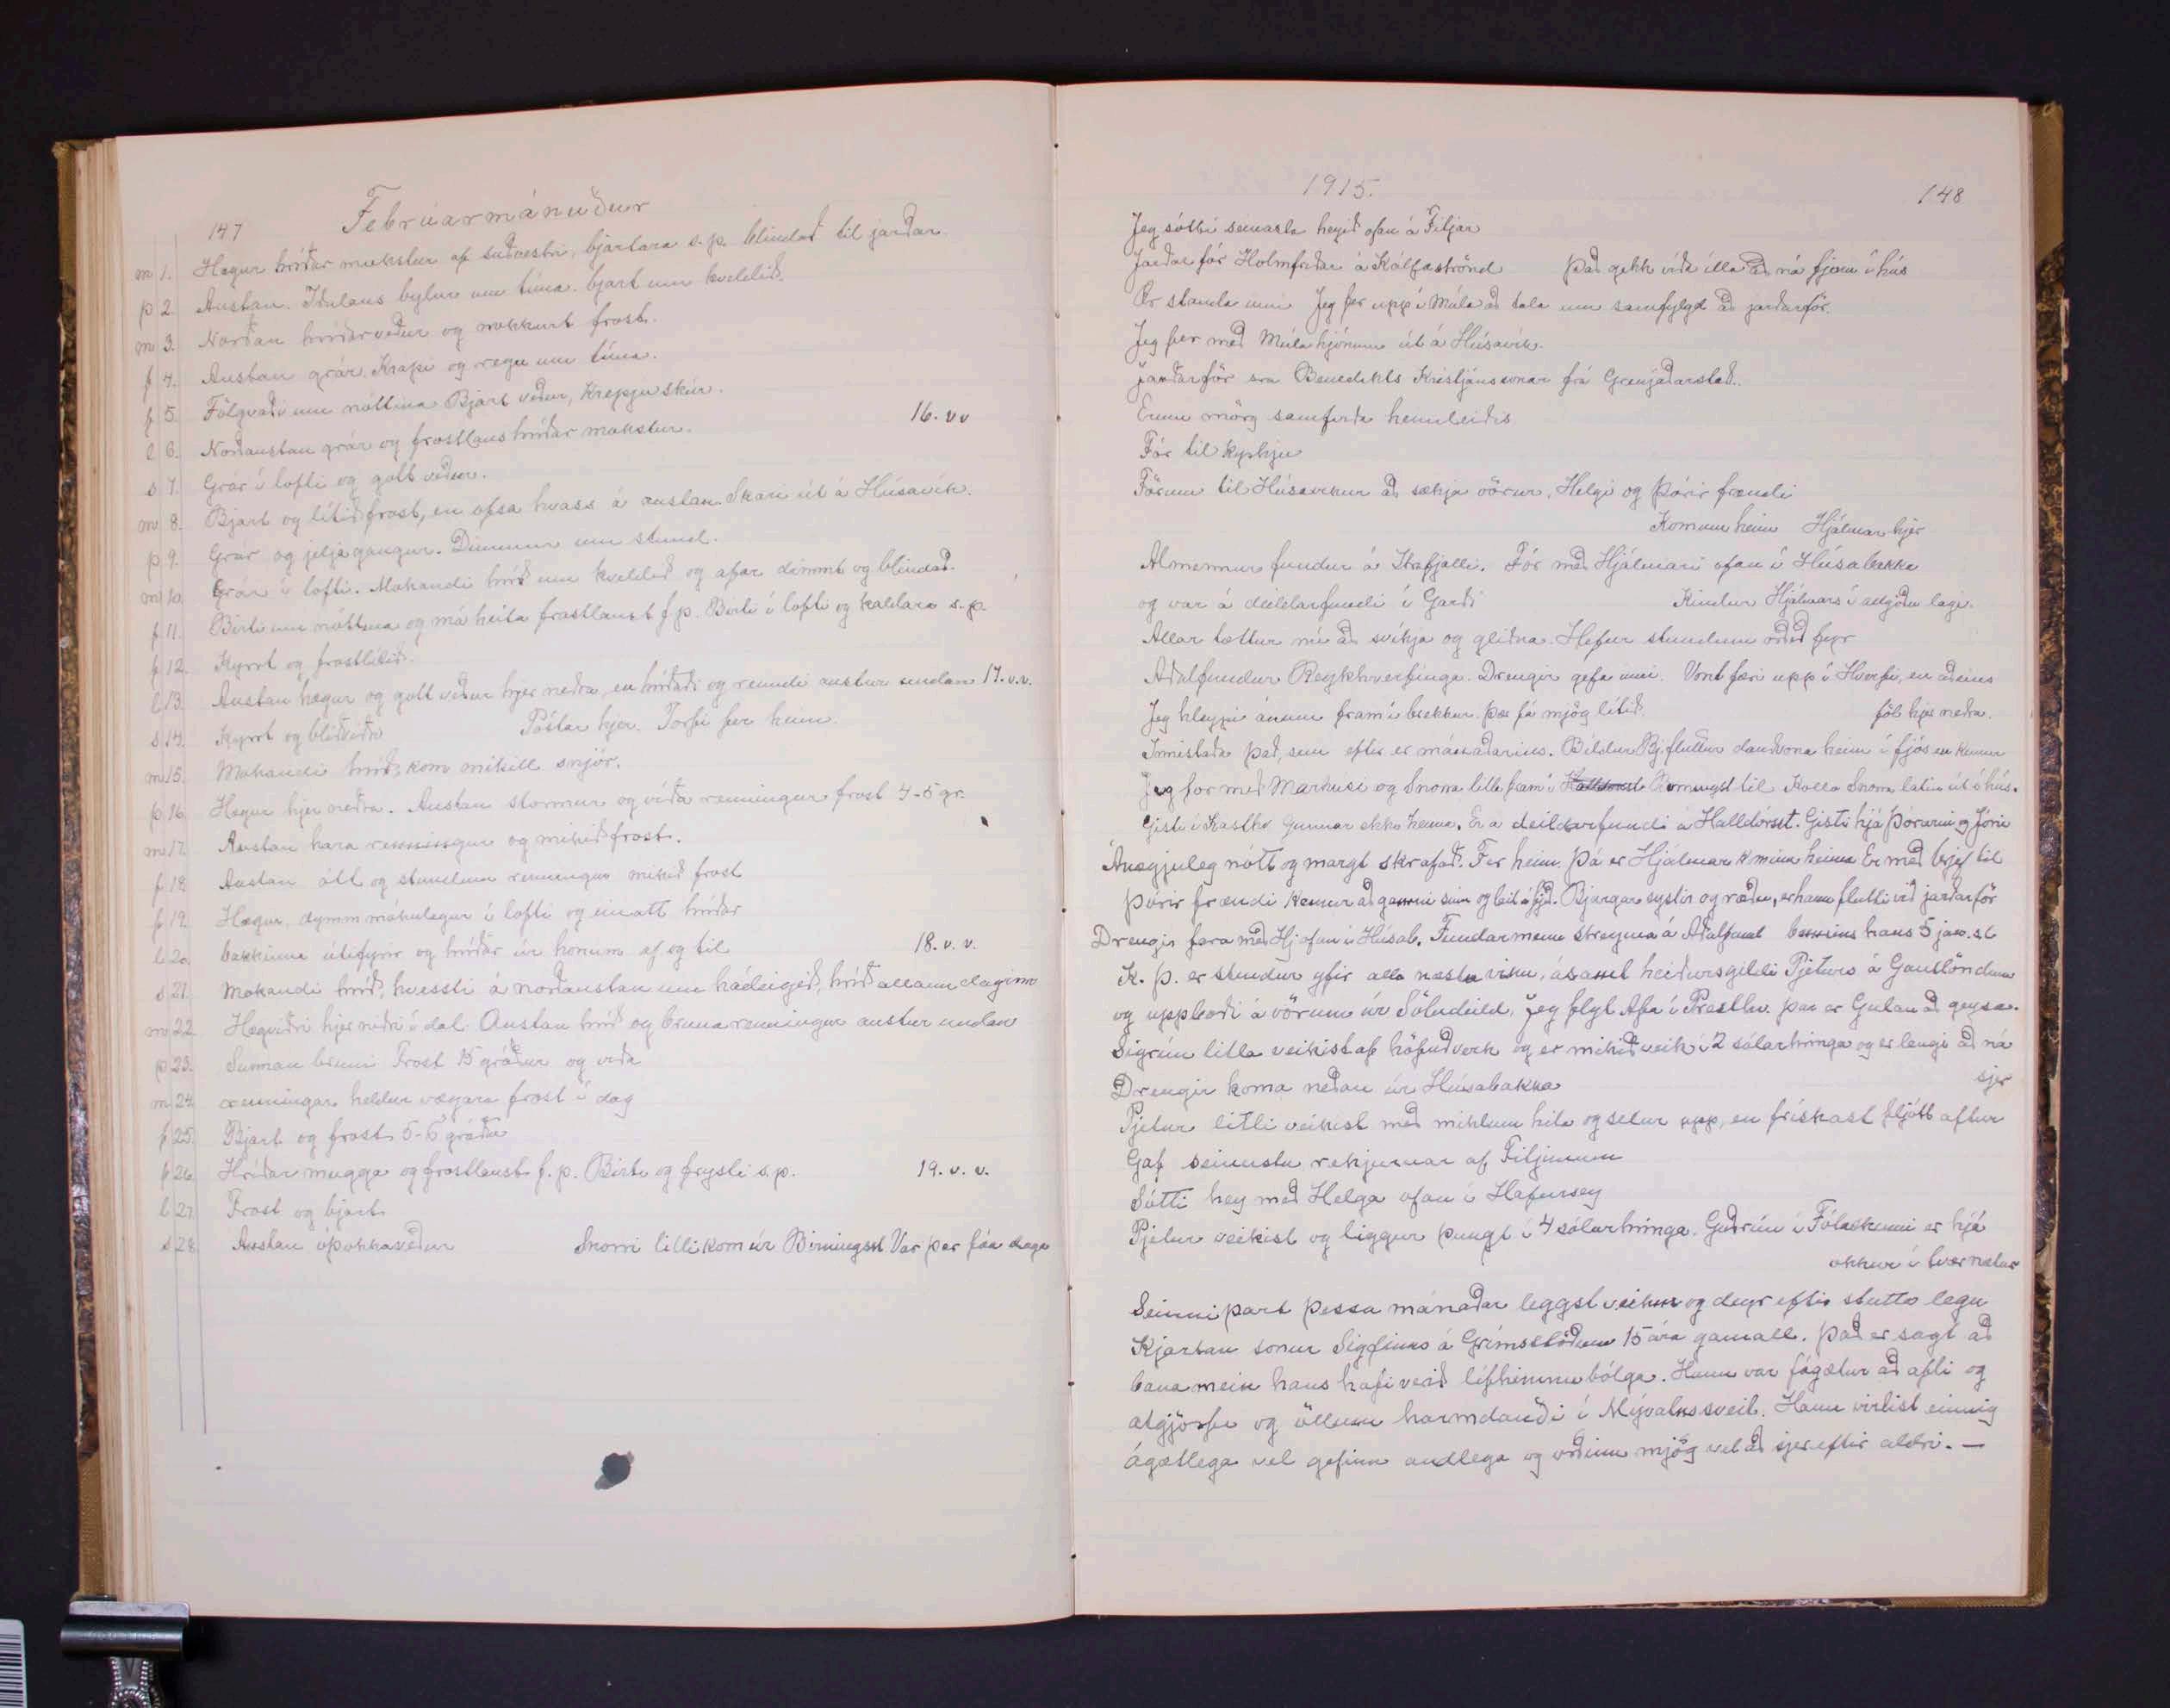 147 Febrúarmánuður
m 1. Hægur hríðar mukstur af suðvestri, bjartara s.p. blindað til jarðar
þ 2. Austan. Iðulaus bylur um tíma. bjart um kveldið.
m 3. Norðan hríðarveður og nokkurt frost.
f 4. Austan grár. Krapi og regn um tíma.
f 5. Fölgvaði um nóttina Bjart veður, Kreppju skúr.
l 6. Norðaustan grár og frostlaus hríðar mokstur. 16. vv
s 7. Grár í lofti og gott veður.
m 8. Bjart og lítið frost, en ofsa hvass á austan Skari út á Húsavík.
þ 9. Grár og jeljagangur. Dimmur um stund.
m 10. Grár í lofti. Mokandi hríð um kveldið og afar dimmt og blindað.
f 11. Birti um nóttina og má heita frostlaust f.p. Birti í lofti og kaldara s.p.
f 12. Kyrrt og frostlítið.
l 13. Austan hægur og gott veður hjer neðra, en hríðaði og renndi austur undan 17. v.v.
s 14. Kyrrt og blíðviðri Póstar hjer. Torfi fer heim.
m 15. Mokandi hríð, kom mikill snjór.
þ 16. Hægur hjer neðra. Austan stormur og víða renningur frost 4-5 gr.
m 17. Austan hara renningur og mikið frost.
f 18. Austan átt og stundum renningur mikið frost
f 19. Hægur, dymm mökulegur í lofti og einatt hríðar
l 20. bakkinn útifyrir og hríðar úr honum af og til 18. v. v.
s 21. Mokandi hríð, hvessti á norðaustan um hádeigið, hríð allann daginn
m 22. Hægviðri hjer niðri í dal. Austan hríð og bruna renningur austur undan
þ 23. Sunnan bruni Frost 15 gráður og víða
m 24. renningar heldur vægara frost í dag
f 25. Bjart og frost 5-6 gráður
f 26. Hríðar mugga og frostlaust f.p. Birti og frysti s.p. 19. v. v.
l 27. Frost og bjart
s 28. Austan óþokkaveður Snorri litli kom úr Birningsst Var þar fáa daga
1915. 148
Jeg sótti seinasta heyið ofan á Fitjar
Jarðarför Holmfríðar á Kálfaströnd Það gekk víða illa að ná fjenu í hús
Ær standa inni Jeg fer upp í Múla að tala um samfylgd að jarðarför.
Jeg fer með Múla hjónum út á Húsavík.
Jarðarför sra Benedikts Kristjánssonar frá Grenjaðarstað.
Erum mörg samferða heimleiðis
Fór til kyrkju
Förum til Húsavíkur að sækja vörur, Helgi og Þórir frændi
Komum heim Hjálmar hjer
Almennur fundur á Ytrafjalli. Fór með Hjálmari ofan í Húsabakka
og var á deildarfundi í Garði Kindur Hjálmars í allgóðu lagi.
Allar tættur nú að svíkja og gliðna. Hefur stundum orðið fyr
Aðalfundur Reykhverfinga. Drengir gefa inni. Vont færi upp í Hverfi, en aðeins
Jeg hleypi ánum fram í brekkur. þær fá mjög lítið. föl hjer neðra.
Innistaða það, sem eftir er mánaðarins. Bíldur Bj. fluttur dauðvona heim í fjós en
Jeg for með Markusi og Snorra litla fram í Birningsst til Snorra latin út ó hús.
Gisti í Gunnar ekki heima. Er a deildarfundi á Halldórsst. Gisti hjá Þórarni og Jóni
Ánægjuleg nótt og margt skrafað. Fer heim. Þá er Hjálmar minn heima Er með brjef til
Þórir frændi Kemur að gamni sínu og leit á fjeð. Bjargar systir og ræðu, er hann flutti við jarðarför
Drengir fara með Hj ofan í Húsab. Fundarmenn streyma á Aðalfund hans 5 jan. st
K. Þ. er stendur yfir alla næstu viku, ásamt heiðursgildi Pjeturs á Gautlöndum
og uppboði á vörum úr Söludeild. Jeg flyt Afa í Presthv. þar er Gulan að geysa.
Sigrún litla veikist af höfuðverk og er mikið veik í 2 sólarhringa og er lengi að ná
Drengir koma neðan úr Húsabakka sjer
Pjetur litli veikist með miklum hita og selur upp, en frískast fljótt aftur
Gaf seinustu rekjurnar af Fitjunum
Sótti hey með Helga ofan í Hafursey
Pjetur veikist og liggur þungt í 4 sólarhringa. Guðrún í Fótaskinni er hjá
okkur í tvær nætur
Seinnipart þessa mánaðar leggst veikur og deyr eftir stutta legu
Kjartan sonur Sigfinns á Grímsstöðum 15 ára gamall. Það er sagt að
bana mein hans hafi verið lífhimnubólga. Hann var fágætur að afli og
atgjörfi og öllum harmdauði í Mývatnssveit. Hann virtist einnig
ágætlega vel gefinn andlega og orðinn mjög vel að sjer eftir aldri. —